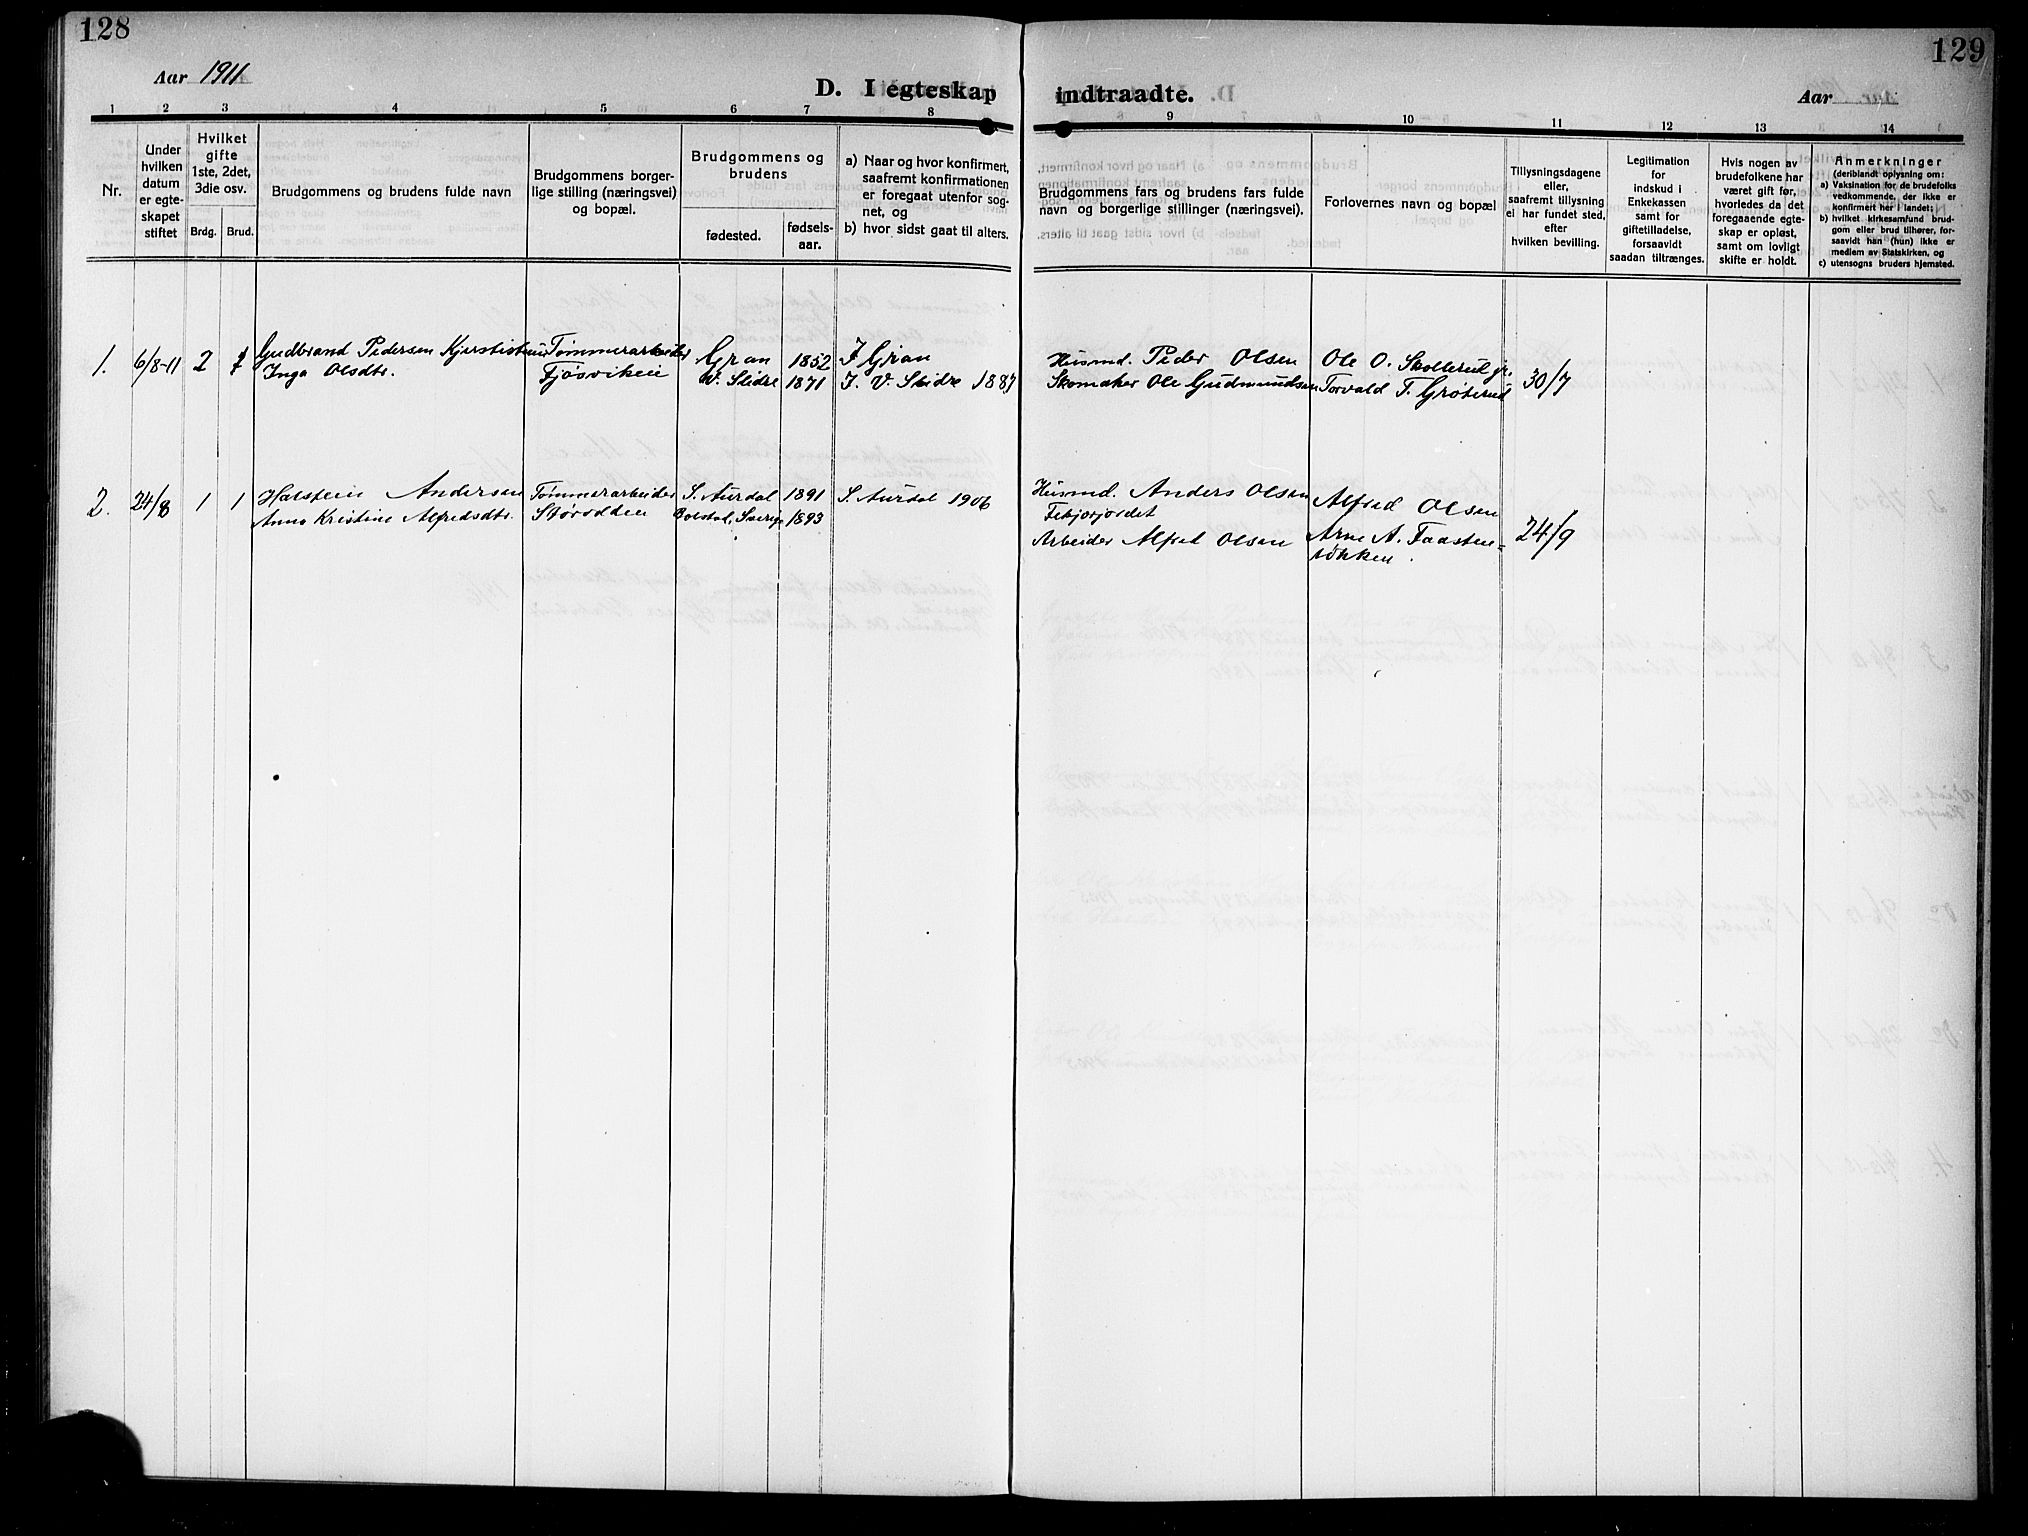 128
129
Aar 1911
D. I egteskap indtraadte.
Aar
1 2 3 4 5 6 7 8 9 10 11 12 13 14
Nr.
Under
hvilken
datum
er egte-
skapet
stiftet
Hvilket
gifte
1ste, 2det,
3die osv.
Brdg. Brud.
Brudgommens og brudens fulde navn
Brudgommens borger-
lige stilling (næringsvei)
og bopæl.
Brudgommens og
brudens
fødested.
fødsels-
aar.
a) Naar og hvor konfirmert,
saafremt konfirmationen
er foregaat utenfor sog-
net, og
b) hvor sidst gaat til alters.
Brudgommens fars og brudens fars fulde
navn og borgerlige stillinger (næringsvei).
Forlovernes navn og bopæl
Tillysningsdagene
eller,
saafremt tillysning
ei har fundet sted,
efter
hvilken bevilling.
Legitimation
for
indskud i
Enkekassen
samt for
giftetilladelse,
forsaavidt
saadan tiltrænges.
Hvis nogen av
brudefolkene har
været gift før,
hvorledes da det
foregaaende egte-
skap er opløst,
samt om lovligt
skifte er holdt.
Anmerkninger
(deriblandt oplysning om:
a) Vaksination for de brudefolks
vedkommende, der ikke er
konfirmert her i landet;
b) hvilket kirkesamfund brud-
gom eller brud tilhører, for-
saavidt han (hun) ikke er
medlem av Statskirken, og
c) utensogns bruders hjemsted.
1. 6/8-11 2 Gudbrand Pedersen Tømmerarbeider Gran 1852 I Gran Husmd. Peder Olsen Ole O. Skollerud jr.
Inga Olsdtr. Fjøsvikeie V. Slidre 1871 I. V. Slidre 1887 Skomaker Ole Gudmundsen Torvald T. Grøterud 30/7
2. 24/8 1 1 Halstein Andersen Tømmerarbeider S. Aurdal 1891 S. Aurdal 1906 Husmd. Anders Olsen Alfred Olsen
Anna Kristine Alfredsdtr. Sverige 1893 Arne A. Faasten-
Arbeider Alfred Olsen løkken. 24/9